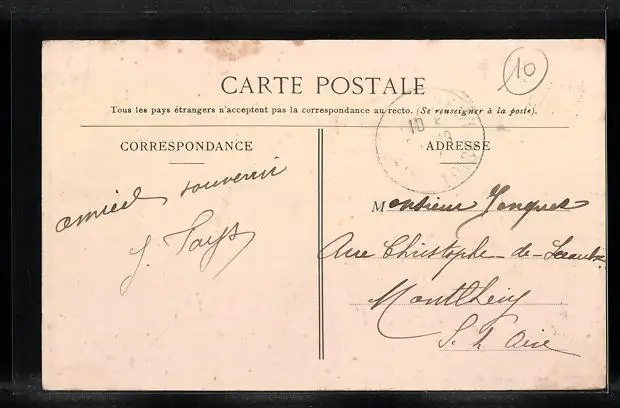 10
CARTE POSTALE
Tous les pays étrangers n'acceptent pas la correspondance au recto. (Se renseigner à la poste).
CORRESPONDANCE
ADRESSE
amical souvenir
J. Pays
Monsieur
Rue Christophe-de-
Montlhéry
S. & Oise